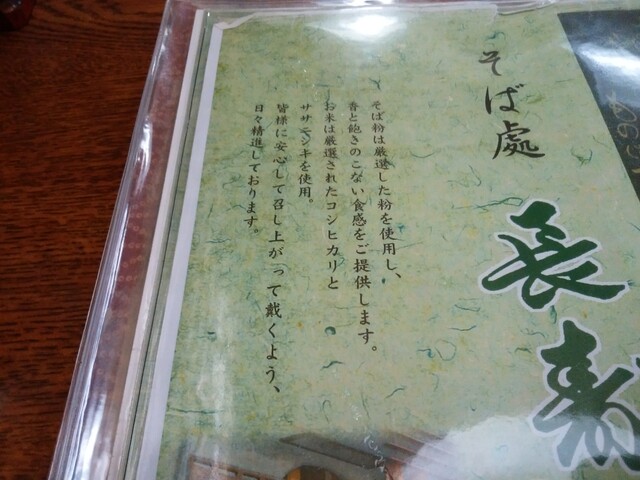 そば處
長寿
そば粉は厳選した粉を使用し、
香と飽きのこない食感をご提供します。
お米は厳選されたコシヒカリと
ササニシキを使用。
皆様に安心して召し上がって戴くよう、
日々精進しております。